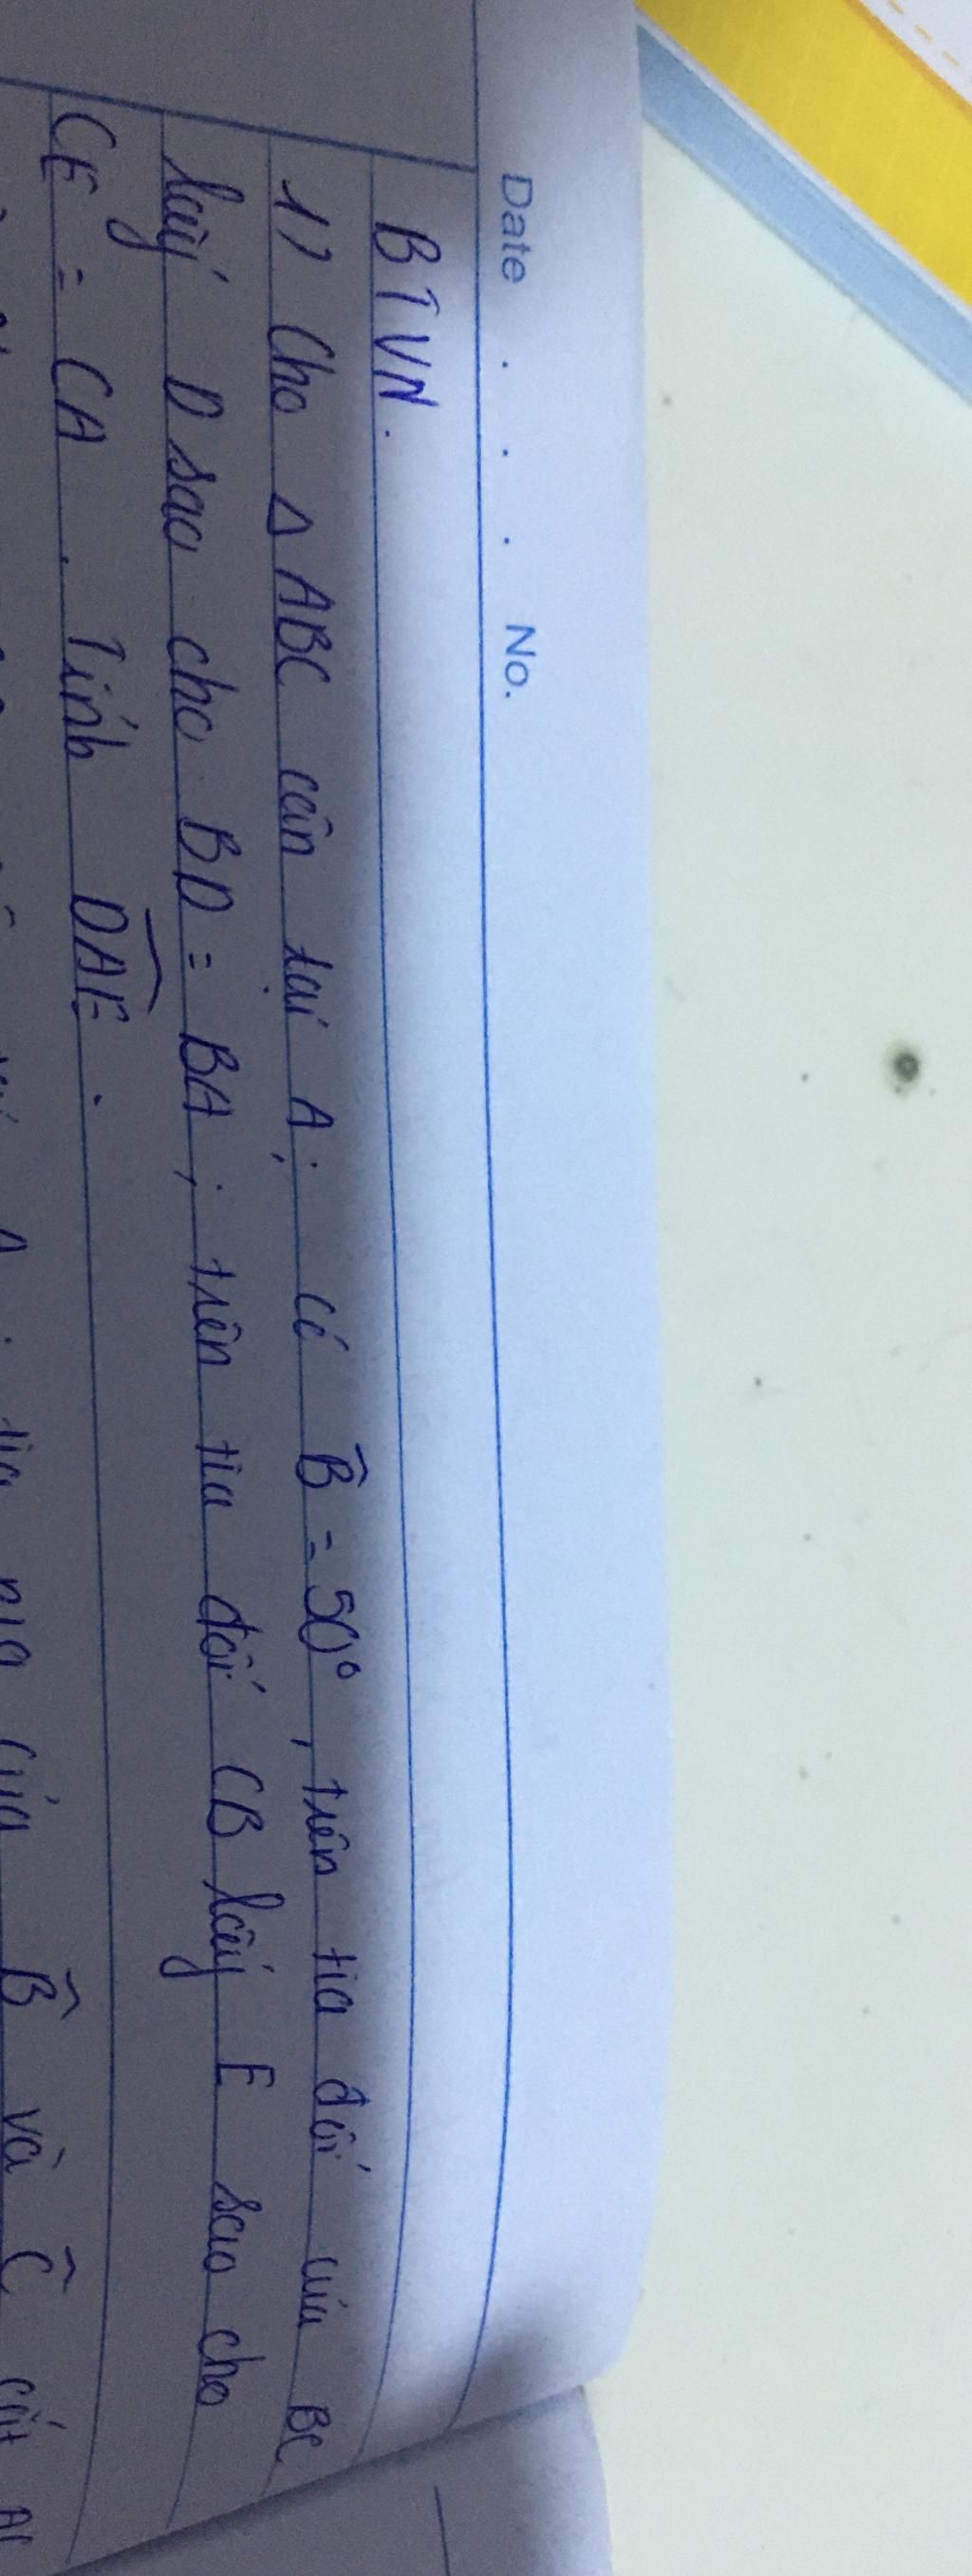 Date . . . No.
BTVN.
1) Cho Δ ABC cân tại A; có B̂ = 50°, trên tia đối của BC
lấy D sao cho BD = BA; trên tia đối CB lấy E sao cho
CE = CA. Tính DAE.
B̂ và Ĉ cắt AC